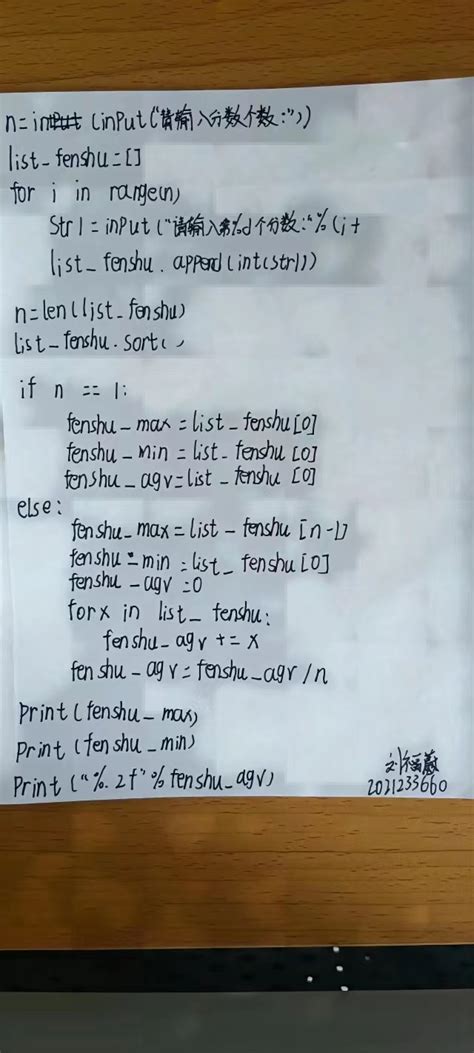 n=input (input("请输入分数个数:"))
list_fenshu=[]
for i in range(n)
str1=input("请输入第%d个分数:"%(i+
list_fenshu.append(int(str1))
n=len(list_fenshu)
list_fenshu.sort()
if n == 1:
fenshu_max=list_fenshu[0]
fenshu_min=list_fenshu[0]
fenshu_agv=list_fenshu[0]
else:
fenshu_max=list_fenshu[n-1]
fenshu_min=list_fenshu[0]
fenshu_agv=0
for x in list_fenshu:
fenshu_agv += x
fenshu_agv=fenshu_agv/n
Print(fenshu_max)
Print(fenshu_min)
Print("%.2f"%fenshu_agv)
2021233660